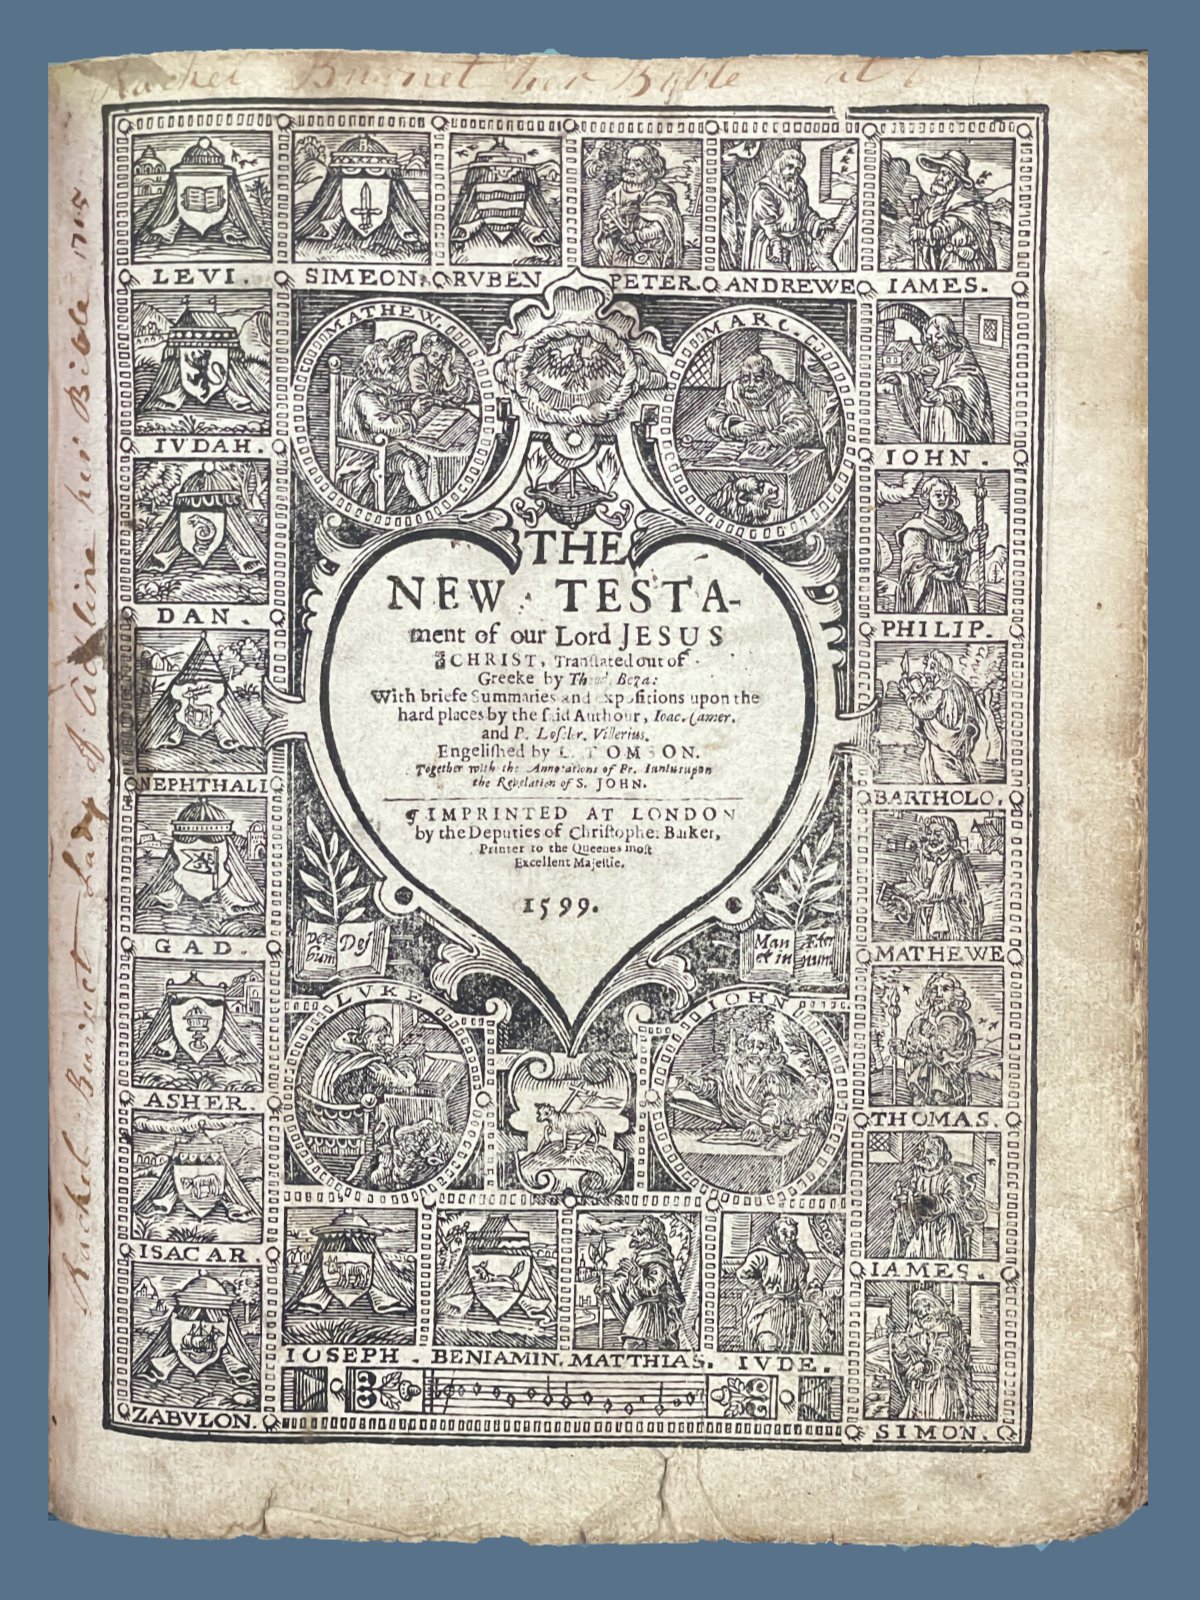 Rachel Burnet her Bible at
Rachel Burnet Lady of her Bible 1705
LEVI.
SIMEON.
RVBEN
PETER.
ANDREWE
IAMES.
MATHEW.
MARC.
IVDAH.
IOHN.
DAN.
PHILIP.
NEPHTHALI
BARTHOLO.
GAD.
MATHEWE
ASHER.
THOMAS.
ISACAR.
IAMES.
ZABVLON.
IOSEPH.
BENIAMIN.
MATTHIAS.
IVDE.
SIMON.
THE
NEW TESTA-
ment of our Lord JESUS
CHRIST, Translated out of
Greeke by Theod. Beza:
With briefe Summaries and expositions upon the
hard places by the said Authour, Ioac. Camer.
and P. Loseler. Villerius.
Engelished by L. TOMSON.
Together with the Annotations of Fr. Iunius upon
the Revelation of S. JOHN.
¶ IMPRINTED AT LONDON
by the Deputies of Christopher Barker,
Printer to the Queenes most
Excellent Majestie.
1599.
Verbum Dei
Manet in Æternum
LVKE
IOHN